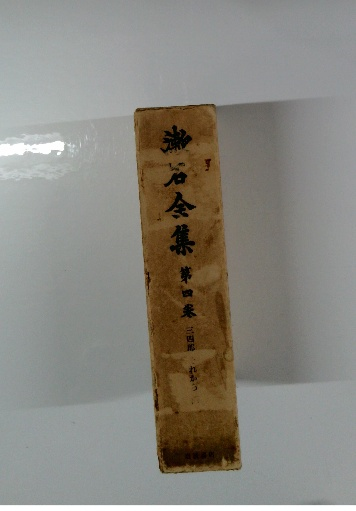 漱石全集
第四巻
三四郎
れから